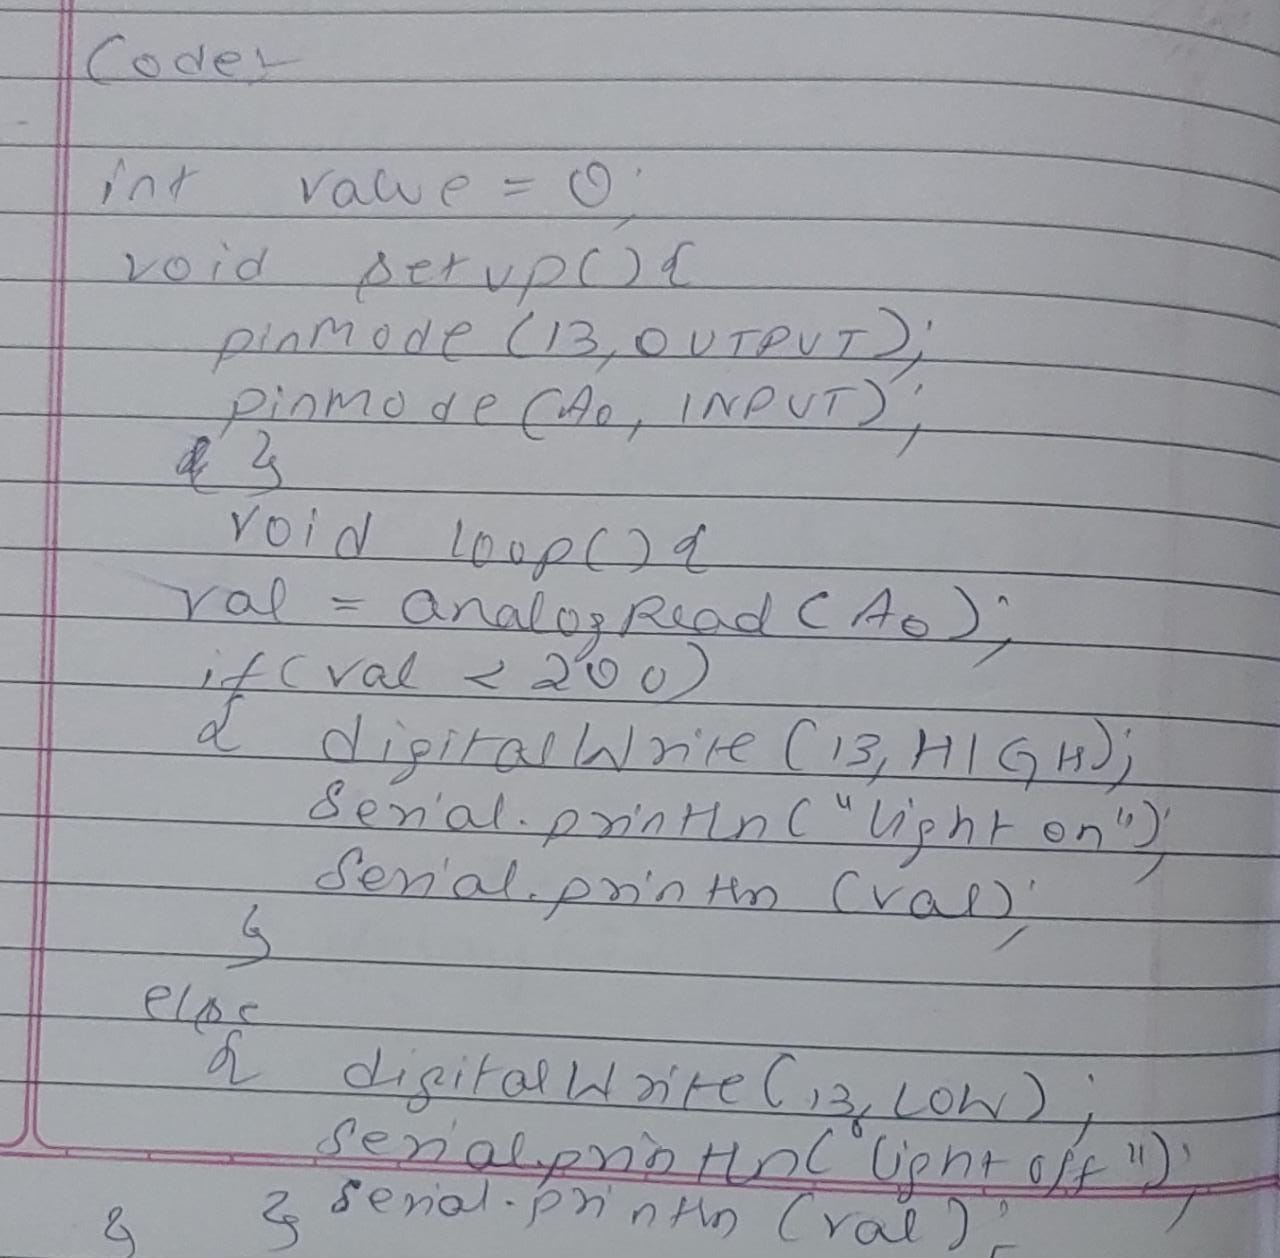 Code:-
int value = 0;
void setup(){
pinMode (13, OUTPUT);
pinmode (A0, INPUT);
}
void loop(){
val = analogRead (A0);
if (val < 200)
{ digitalWrite (13, HIGH);
Serial.println ("light on");
Serial.println (val);
}
else
{ digitalWrite (13, LOW);
Serial.println ("light off");
} } Serial.println (val);